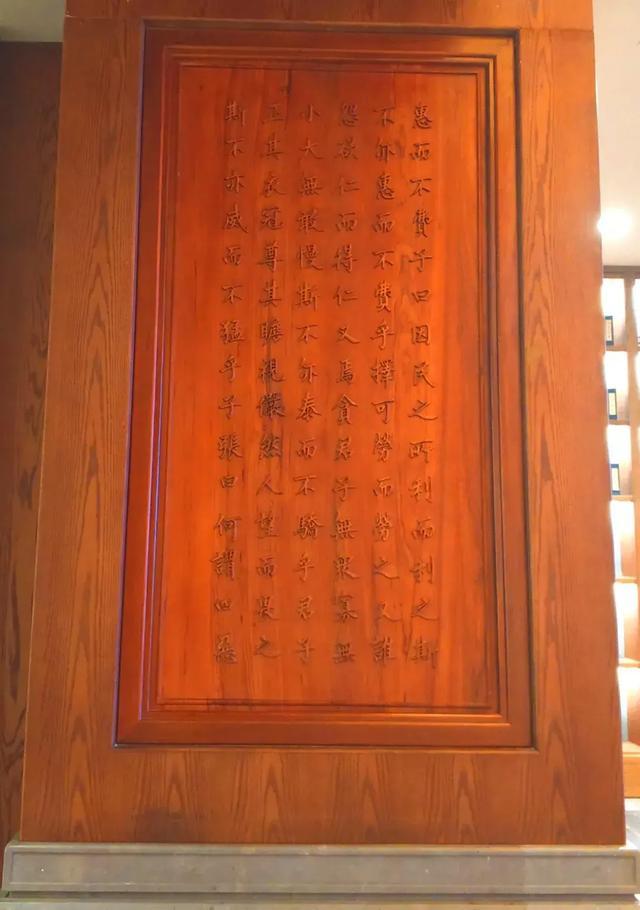 惠而不費子曰因民之所利而利之斯
不亦惠而不費乎擇可勞而勞之又誰
怨欲仁而得仁又焉貪君子無眾寡無
小大無敢慢斯不亦泰而不驕乎君子
正其衣冠尊其瞻視儼然人望而畏之
斯不亦威而不猛乎子張曰何謂四惡